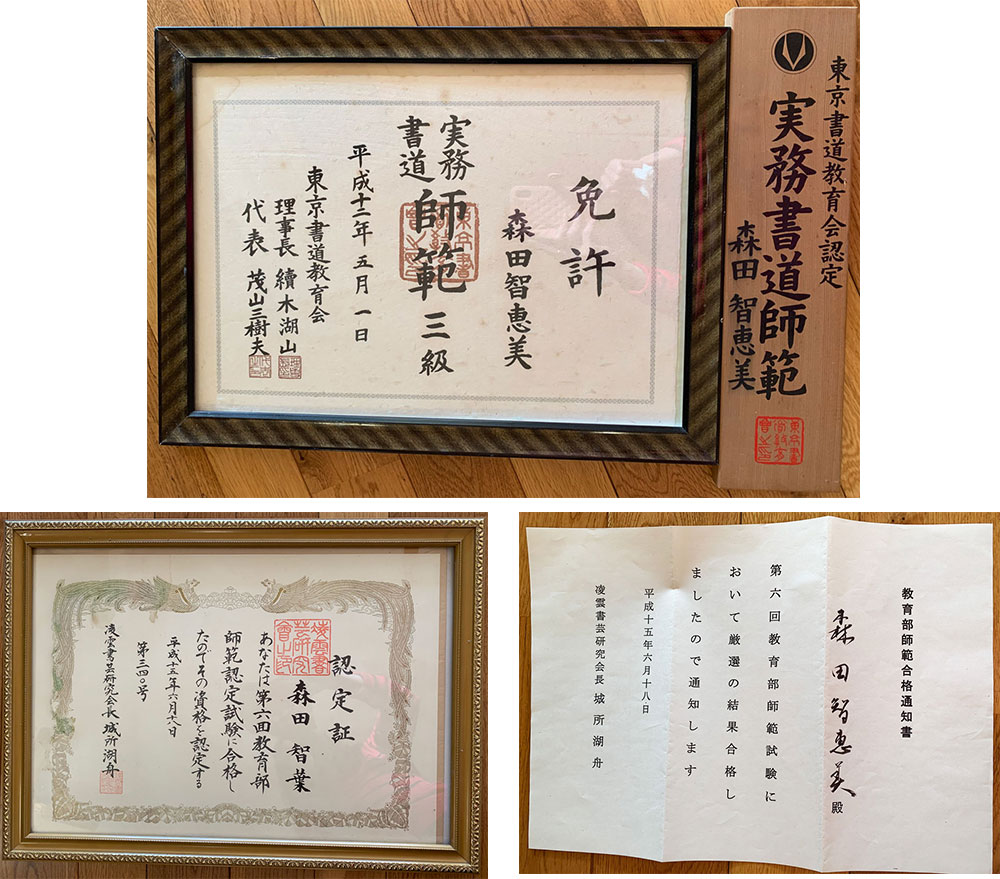 免許
森田智恵美
実務
書道
師範三級
平成十二年五月一日
東京書道教育会
理事長 續木湖山
代表 茂山三樹夫
東京書道教育会認定
実務書道師範
森田智恵美
認定証
森田智葉
あなたは第六回教育部
師範認定試験に合格し
たのでその資格を認定する
平成十五年六月十八日
第三四〇号
凌雲書芸研究会長 城所湖舟
凌雲書
芸研究
會之印
教育部師範合格通知書
森田智恵美殿
第六回教育部師範試験に
おいて厳選の結果合格し
ましたので通知します
平成十五年六月十八日
凌雲書芸研究会長 城所湖舟